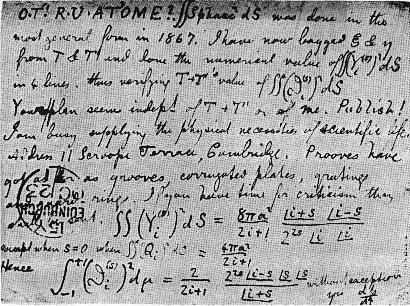 O.T'. R.U. AT 'OME? ∫∫ Spharc² dS was done in the
most general form in 1867. I have now bagged ξ & η
from T & T' and done the numerical value of ∫∫(Y_i^{(s)})² dS
in 4 lines. thus verifying T+T''s value of ∫∫(ϑ_i^{(s)})² dS
Your plan seems indept of T+T' or of me. Publish!
I am busy supplying the physical necessities of scientific life
address 11 Scroope Terrace, Cambridge. Prooves have
got as as grooves, corrugated plates, gratings
rings. If you have time for criticism then
∫∫ (Y_i^{(s)})² dS = 8πa²/(2i+1) |i+s |i−s / 2^{2s} |i |i
except when s=0 when ∫∫(Q_i)² dS = 4πa²/(2i+1)
Hence
∫_{−1}^{+1} (ϑ_i^{(s)})² dμ = 2/(2i+1) 2^{2s} |i−s |s |s / |i+s without exception
EDINBURGH